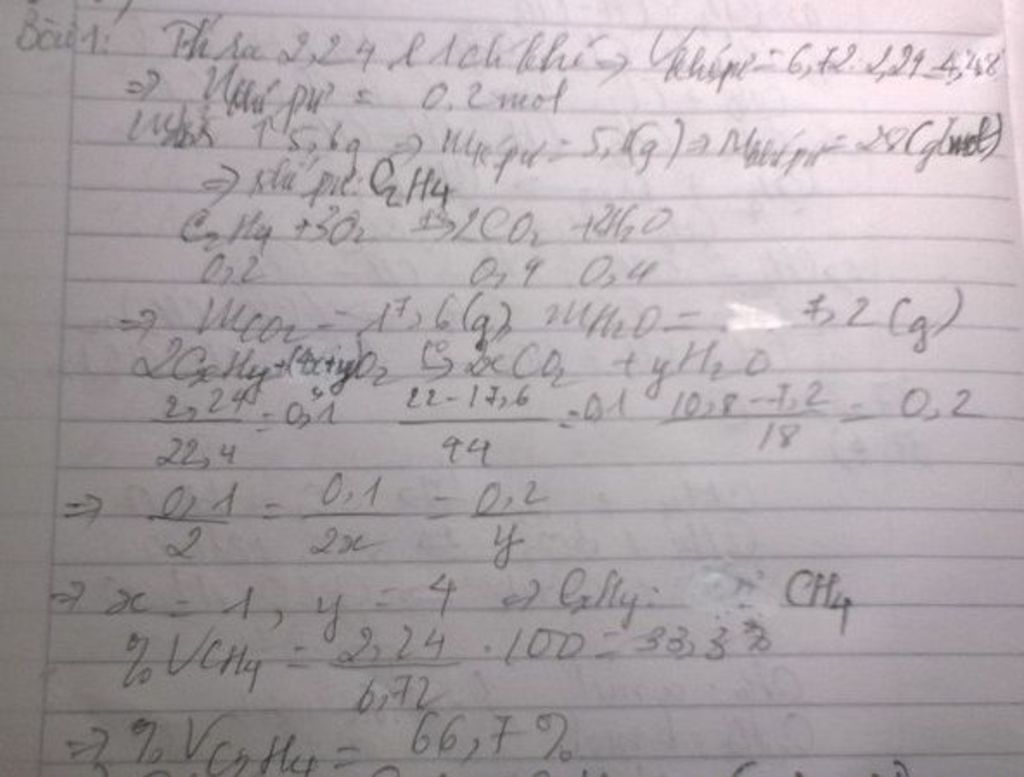 Bài 1: Th ra 2,24 l 1 ch khí => Vkhí pư = 6,72 - 2,24 = 4,48
=> nkhí pư = 0,2 mol
↑ 5,6g => = 5,6(g) => Mkhí pư = 28(g/mol)
=> khí pư: C2H4
C2H4 + 3O2 → 2CO2 + 2H2O
0,2 0,4 0,4
=> mCO2 = 17,6(g), mH2O = 7,2(g)
2CxHy + (4x+y)O2 → 2xCO2 + yH2O
2,24/22,4 = 0,1 22-17,6/44 = 0,1 10,8-7,2/18 = 0,2
=> 0,1/2 = 0,1/2x = 0,2/y
=> x = 1, y = 4 => CxHy: CH4
%VCH4 = 2,24/6,72 . 100 = 33,3%
=> %VC2H4 = 66,7%